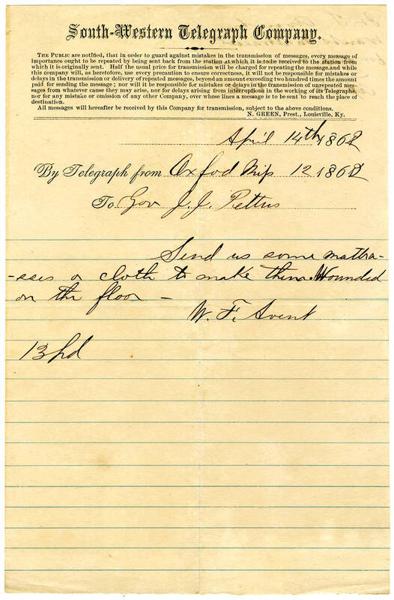 South-Western Telegraph Company.
THE PUBLIC are notified, that in order to guard against mistakes in the transmission of messages, every message of
importance ought to be repeated by being sent back from the station at which it is to be received to the station from
which it is originally sent. Half the usual price for transmission will be charged for repeating the message, and while
this company will, as heretofore, use every precaution to ensure correctness, it will not be responsible for mistakes or
delays in the transmission or delivery of repeated messages, beyond an amount exceeding two hundred times the amount
paid for sending the message; nor will it be responsible for mistakes or delays in the transmission of unrepeated messages
from whatever cause they may arise, nor for delays arising from interruptions in the working of its Telegraphs,
nor for any mistake or omission of any other Company, over whose lines a message is to be sent to reach the place of
destination.
All messages will hereafter be received by this Company for transmission, subject to the above conditions.
N. GREEN, Prest., Louisville, Ky.
April 14th 1862
By Telegraph from Oxfod Miss 12 1862
To Gov J. J. Pettus
Send us some mattra-
-sses or cloth to make them Wounded
on the floor -
W. F. Avent
13 pd